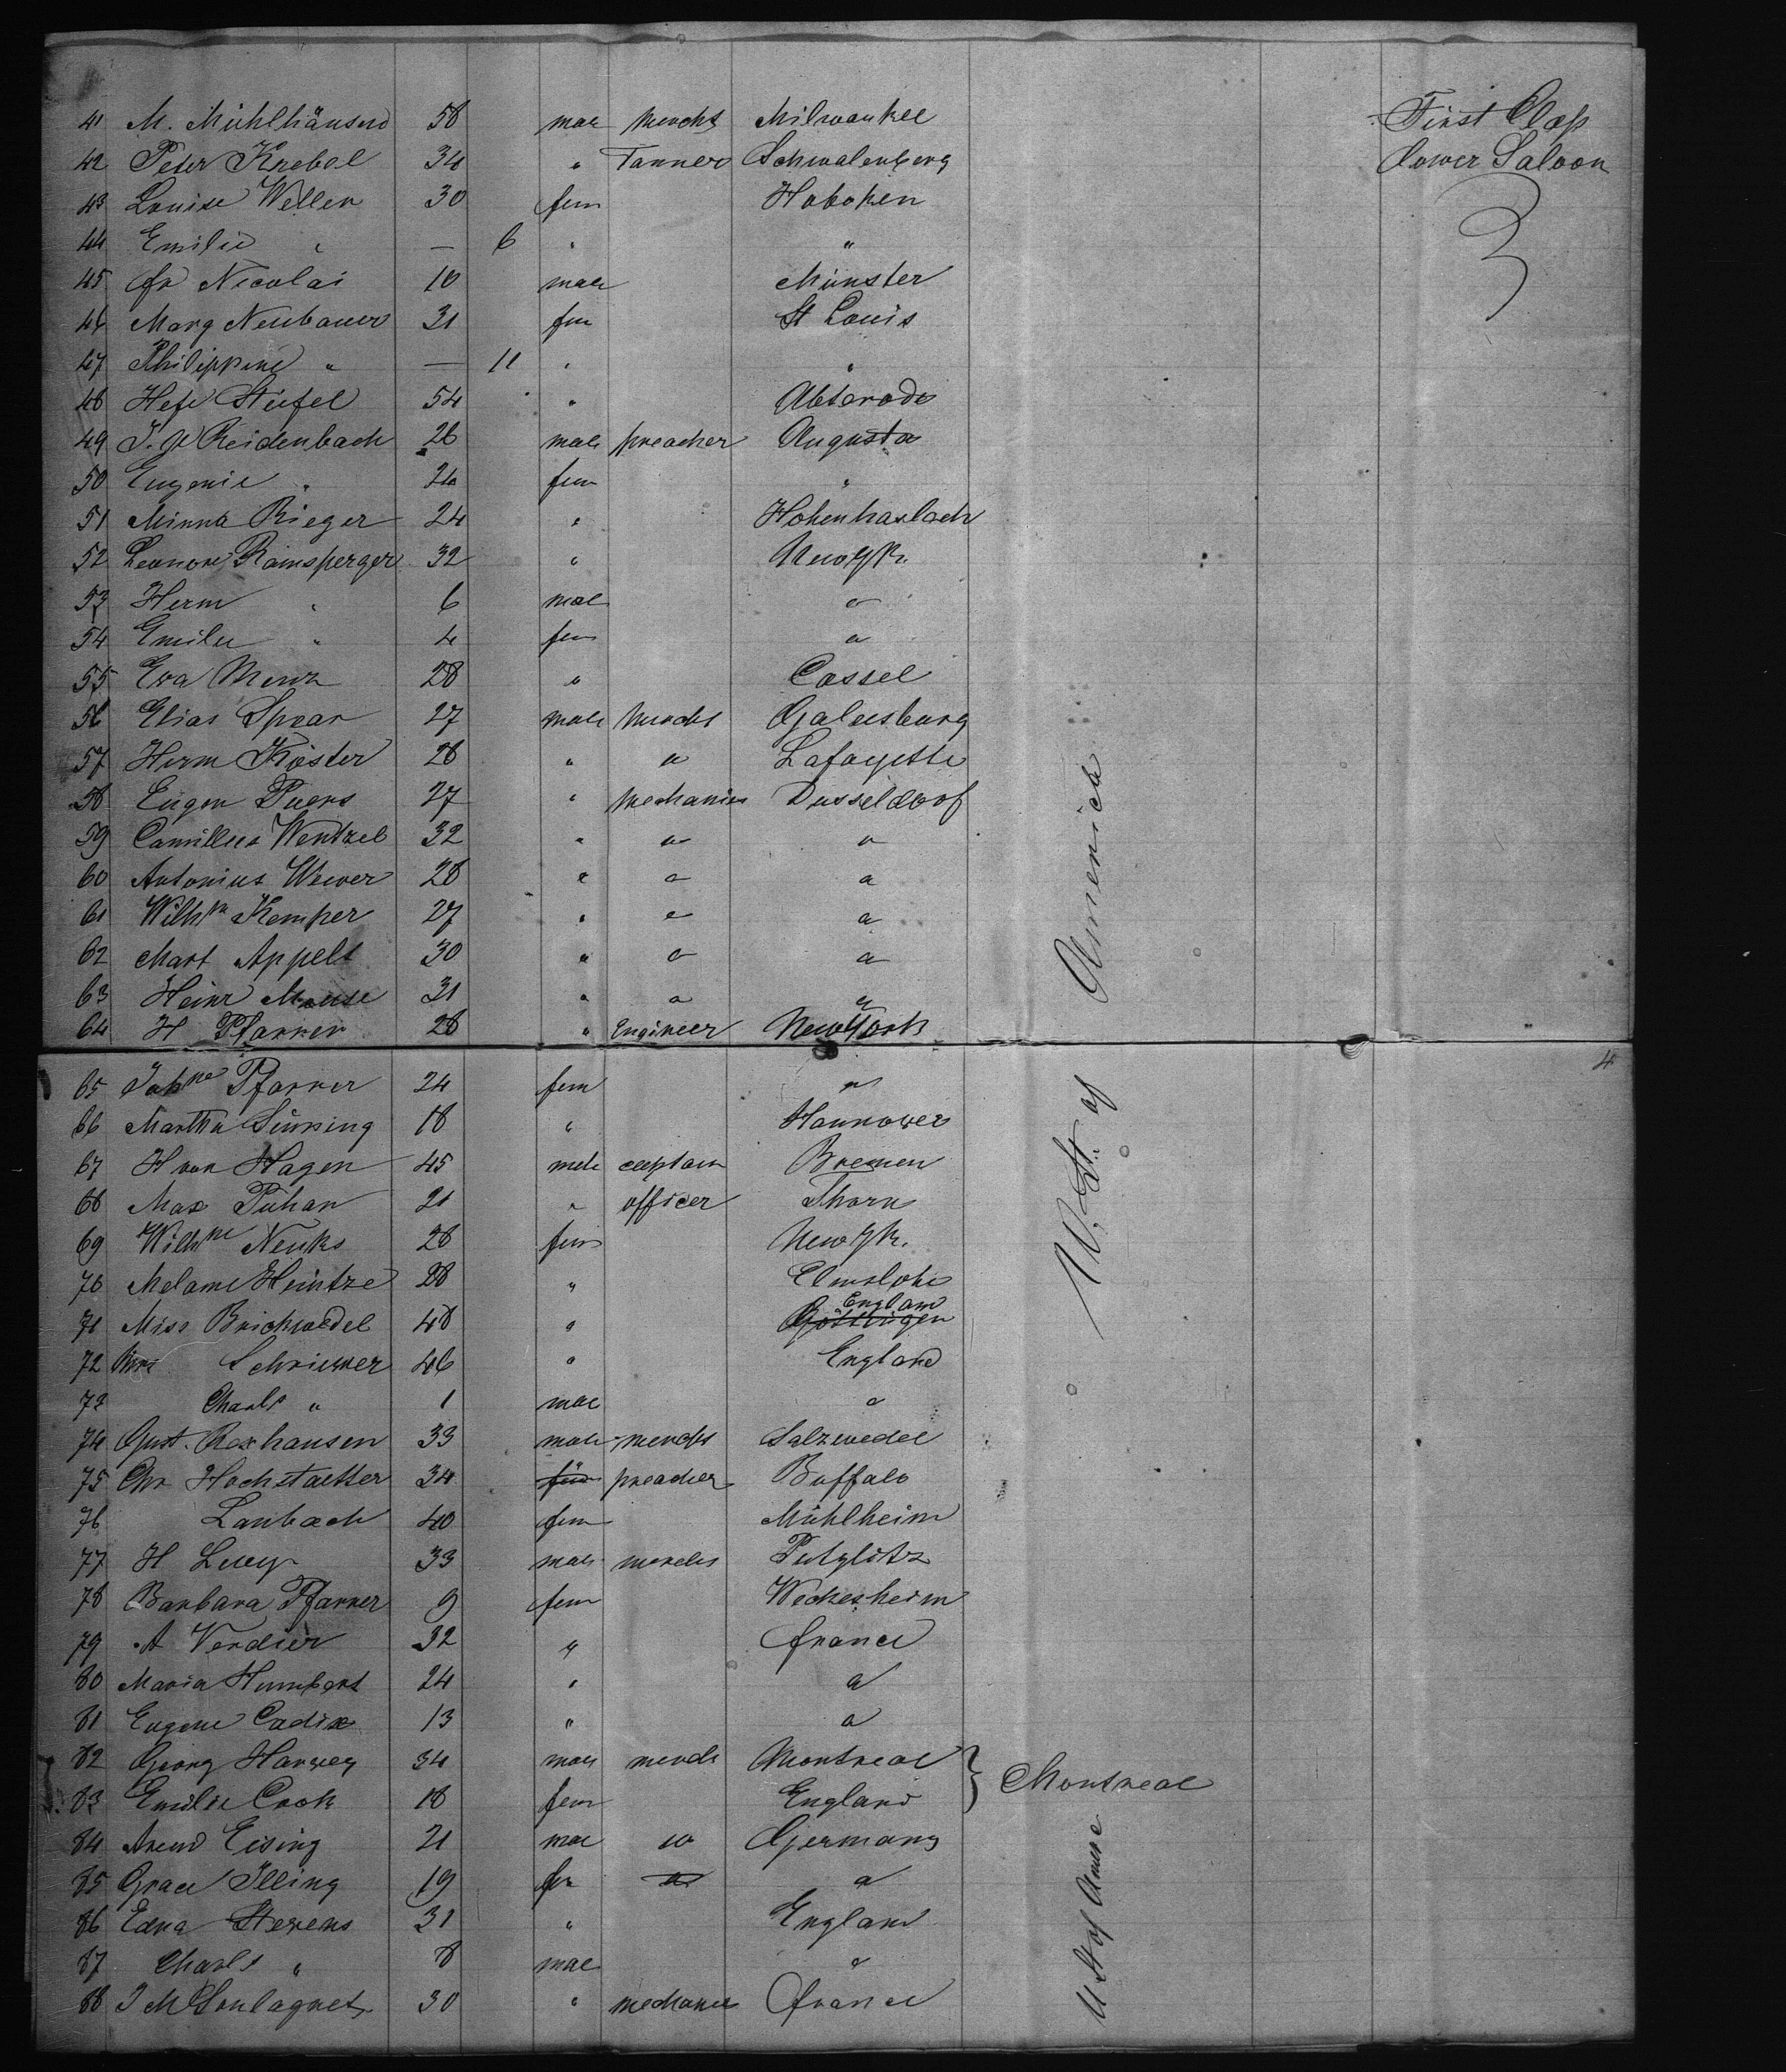 41 M. Mühlhäuser 58 male merchs Milwaukee First Class
42 Peter Knebel 34 " Tanner Schwalenberg Lower Saloon
43 Louise Weller 30 fem Hoboken 3
44 Emilie " — 6 " "
45 Fr Nicolai 10 male Münster
46 Marg Neubauer 31 fem St Louis
47 Philippine " — 11 " "
48 Stiefel 54 " Abterode
49 J. G Reidenbach 26 male preacher Augusta
50 Eugenie " 24 fem "
51 Minna Rieger 24 " Hohenhaslach
52 Leonore Ramsperger 32 " New Yk.
53 Herm " 6 male "
54 Emilie " 4 fem "
55 Eva Menz 28 " Cassel
56 Elias Spear 27 male merchs Galesburg
57 Herm Köster 28 " " Lafayette
58 Eugen Puers 27 " mechanics Dusseldorf
59 Camillus Wentzel 32 " " "
60 Antonius Wewer 28 " " "
61 Wilhm Kemper 27 " " "
62 Mart Appelt 30 " " "
63 Heinr Mause 31 " " "
64 H Pfarrer 28 " Engineer New York
U. St. of America
4
65 Johne Pfarrer 24 fem "
66 Martha Sinning 18 " Hannover
67 H von Hagen 45 male captain Bremen
68 Max Puhan 21 " officer Thorn
69 Wilhne Neuks 28 fem New Yk.
70 Melanie Heintze 28 " Elmslohe
71 Miss Brickwedel 48 " Göttingen England
72 Mrs Schriewer 46 " England
73 Charls " 1 male "
74 Gust. Roxhausen 33 male merchs Salzwedel
75 Chr Hochstaetter 34 fem preacher Buffalo
76 Laubach 40 fem Mühlheim
77 H Levy 33 male merchs Putzlitz
78 Barbara Pfarrer 9 fem Weckesheim
79 A Verdier 32 " France
80 Maria Humbert 24 " "
81 Eugene Cadix 13 " "
82 Georg Harvey 34 male merchs Montreal } Montreal
83 Emilie Cook 18 fem England
84 Arend Eising 21 male " Germany
85 Grace Illing 19 fem " "
86 Edna Stevens 31 " England
87 Charls " 8 male "
88 J M Soulagnet 30 " mechanic France
U St of Amer